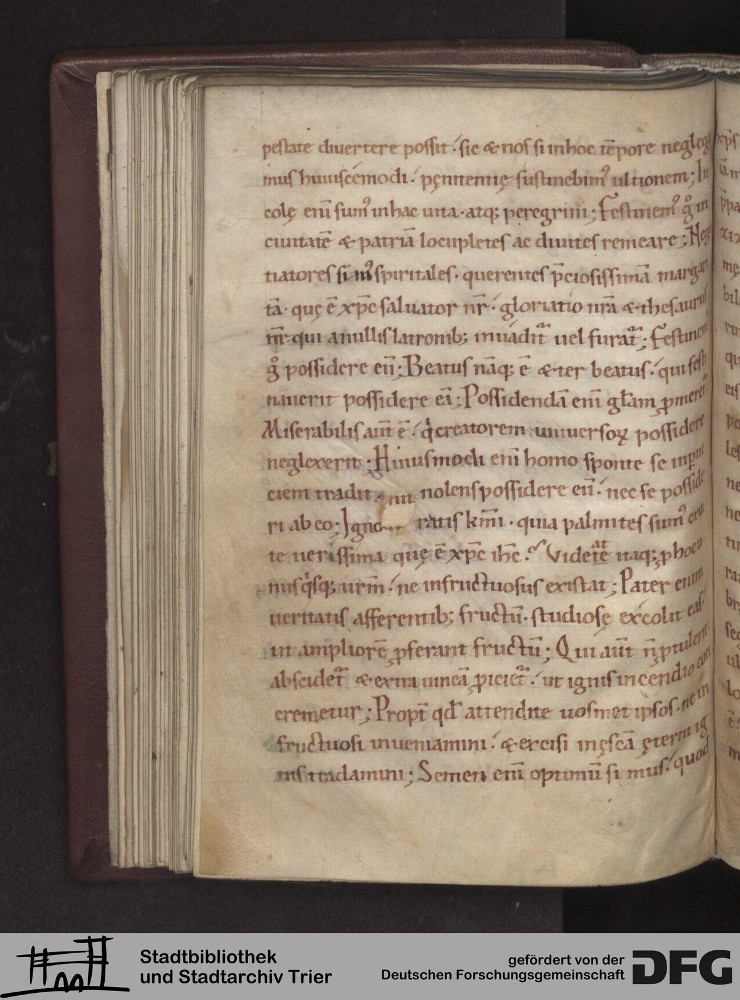 pestate diuertere possit. sic & nos si in hoc tēpore negleg
mus huiuscemodi. pęnitentię sustinebimꝰ ultionem; In
colę eni sumꝰ in hac uita. atq; peregrini; Festinemꝰ g̊ in
ciuitatē & patriā locupletes ac diuites remeare; Neg
tiatores simꝰ spiritales. querentes p̄ciosissimā margari
tā. quę ē xp̄c saluator nr̄. gloriatio nrā & thesaurus
nr̄. qui a nullis latronib; inuadit uel furat; Festinem
g̊ possidere eū; Beatus nāq; ē & ter beatus. qui festi
nauerit possidere eū; Possidendā eni głam p̱meret
Miserabilis aūt ē. q̇ creatorem uniuersoꝝ possidere
neglexerit; Huiusmodi eni homo sponte se in
ciem tradit. nolens possidere eū. nec se possid
ri ab eo; Igno ratis km̄i. quia palmites sumꝰ
te uerissima quę ē xp̄c ihc̄. Videte itaq;
nusq̇sq; urm̄. ne infructuosus existat; Pater enim
ueritatis afferentib; fructū. studiosę excolit eas.
ut ampliorē ꝓferant fructū; Qui aūt n̄ ꝓtulerit
abscidet & extra uineā ꝓiciet. ut ignis incendio con
cremetur; Propt qđ attendite uosmet ipsos. ne in
fructuosi inueniamini. & excisi in ęscā ęterni ig
nis tradamini; Semen eni optimū si mus. quod
Stadtbibliothek
und Stadtarchiv Trier
gefördert von der
Deutschen Forschungsgemeinschaft
DFG